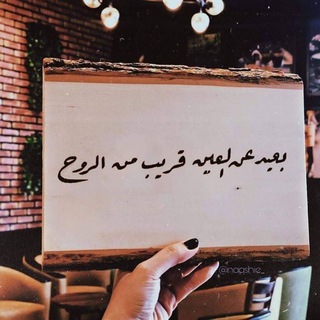 بعيد عن العين قريب من الروح
@inaqshie_